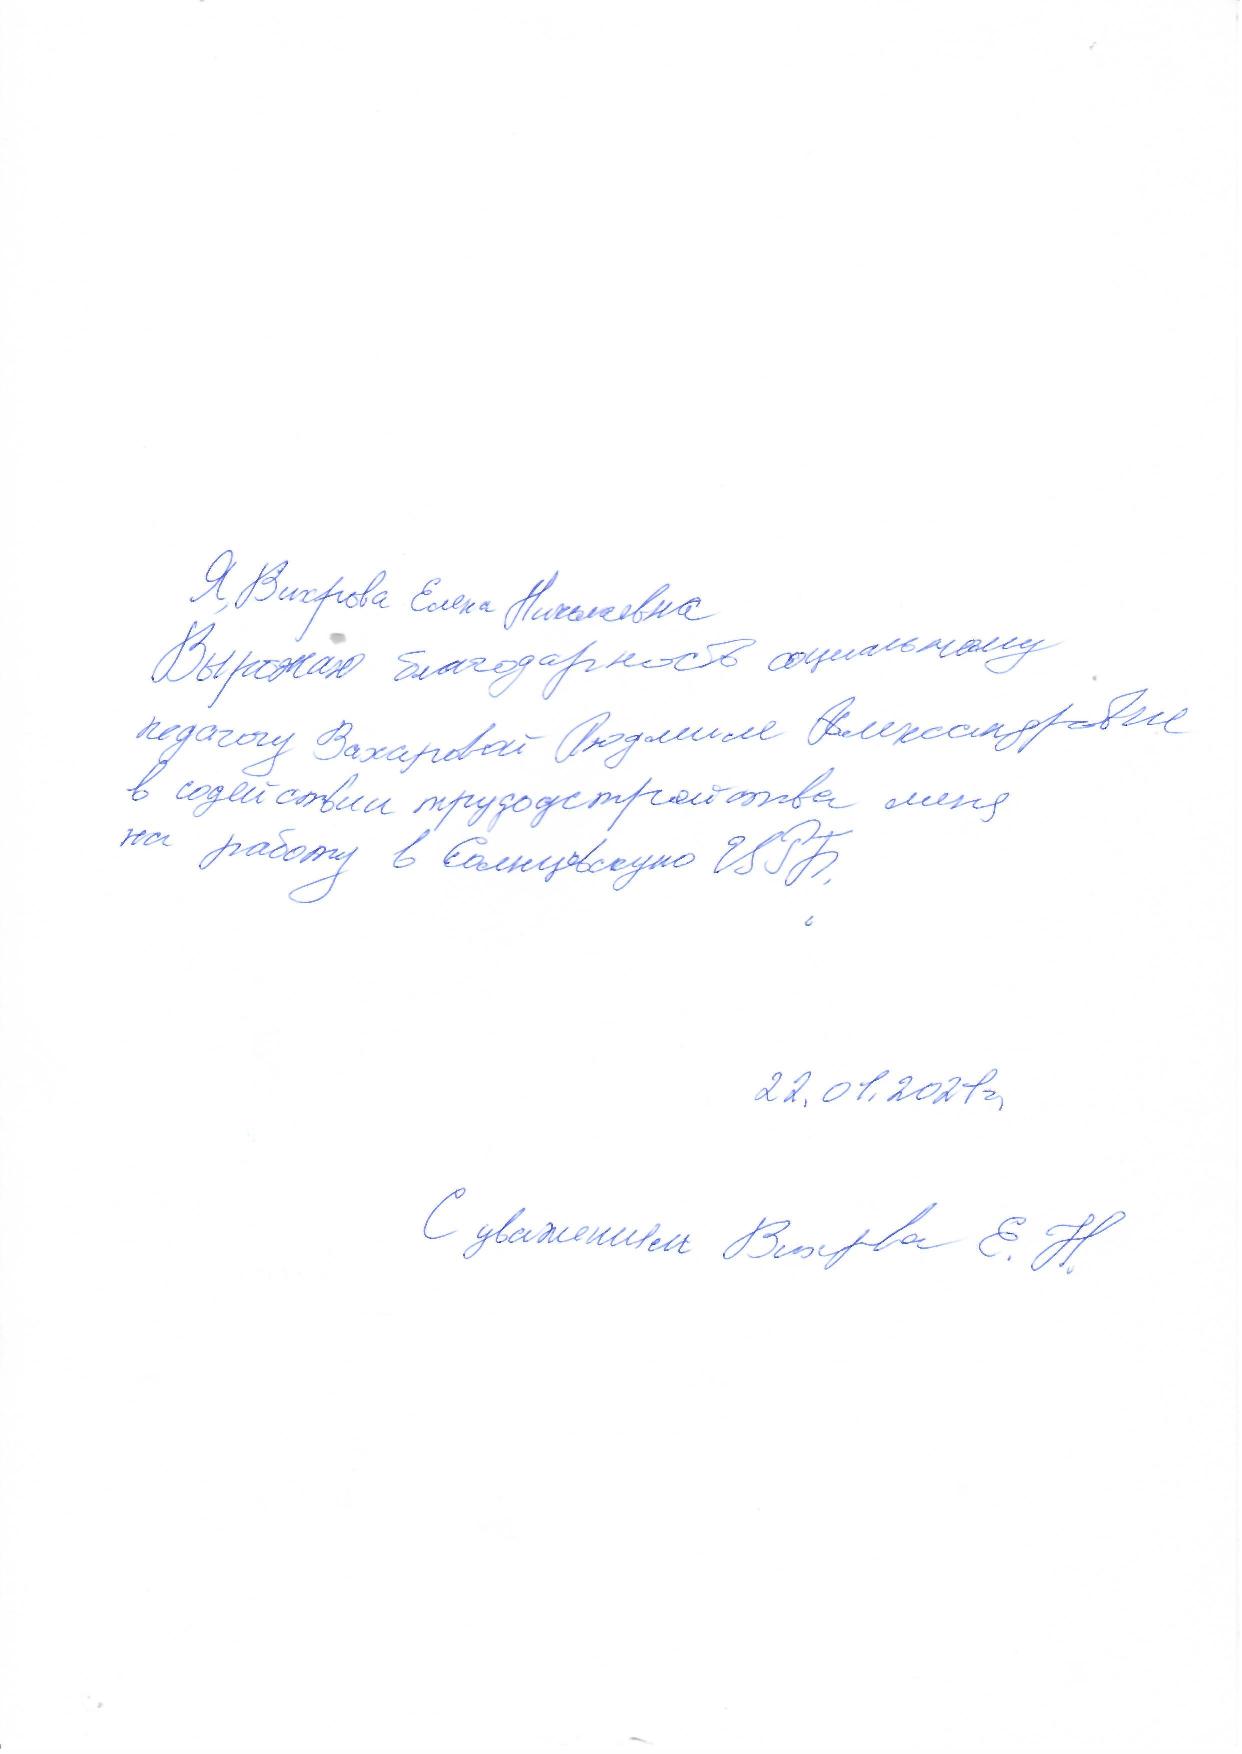 Я, Вихрова Елена Николаевна
Выражаю благодарность социальному
педагогу Захаровой Людмиле Александровне
в содействии трудоустройства меня
на работу в Солнцовскую
22.01.2021г,
С уважением Вихрова Е. Н.